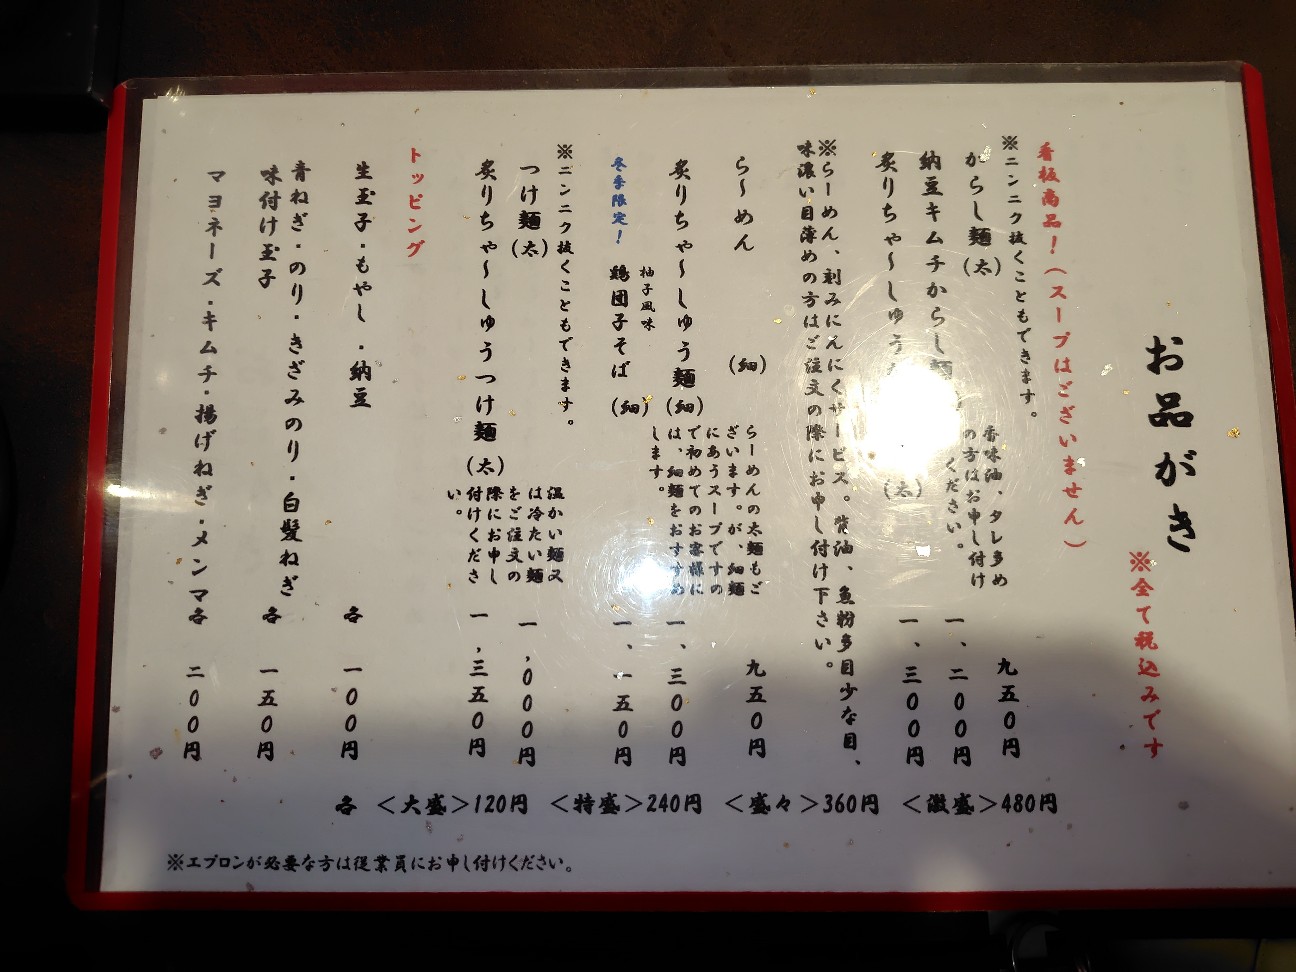 お品がき
※全て税込みです
看板商品！（スープはございません）
※ニンニク抜くこともできます。
からし麺（太） 九五0円
香味油、タレ多め
の方はお申し付け
ください。
納豆キムチからし麺 一、二00円
炙りちゃ～しゅう （太） 一、三00円
※らーめん、刻みにんにくサービス。背油、魚粉多目少な目、
味濃い目薄めの方はご注文の際にお申し付け下さい。
ら～めん （細） 九五0円
らーめんの太麺もご
ざいます。が、細麺
にあうスープですの
で初めてのお客様に
は、細麺をおすすめ
します。
炙りちゃ～しゅう麺（細） 一、三00円
冬季限定！ 柚子風味 鶏団子そば（細） 一、一五0円
※ニンニク抜くこともできます。
つけ麺（太） 一,000円
炙りちゃ～しゅうつけ麺（太） 一,三五0円
温かい麺又
は冷たい麺
をご注文の
際にお申し
付けくださ
い。
トッピング
生玉子・もやし・納豆 各 一00円
青ねぎ・のり・きざみのり・白髪ねぎ
味付け玉子 各 一五0円
マヨネーズ・キムチ・揚げねぎ・メンマ各 二00円
各 ＜大盛＞120円 ＜特盛＞240円 ＜盛々＞360円 ＜激盛＞480円
※エプロンが必要な方は従業員にお申し付けください。